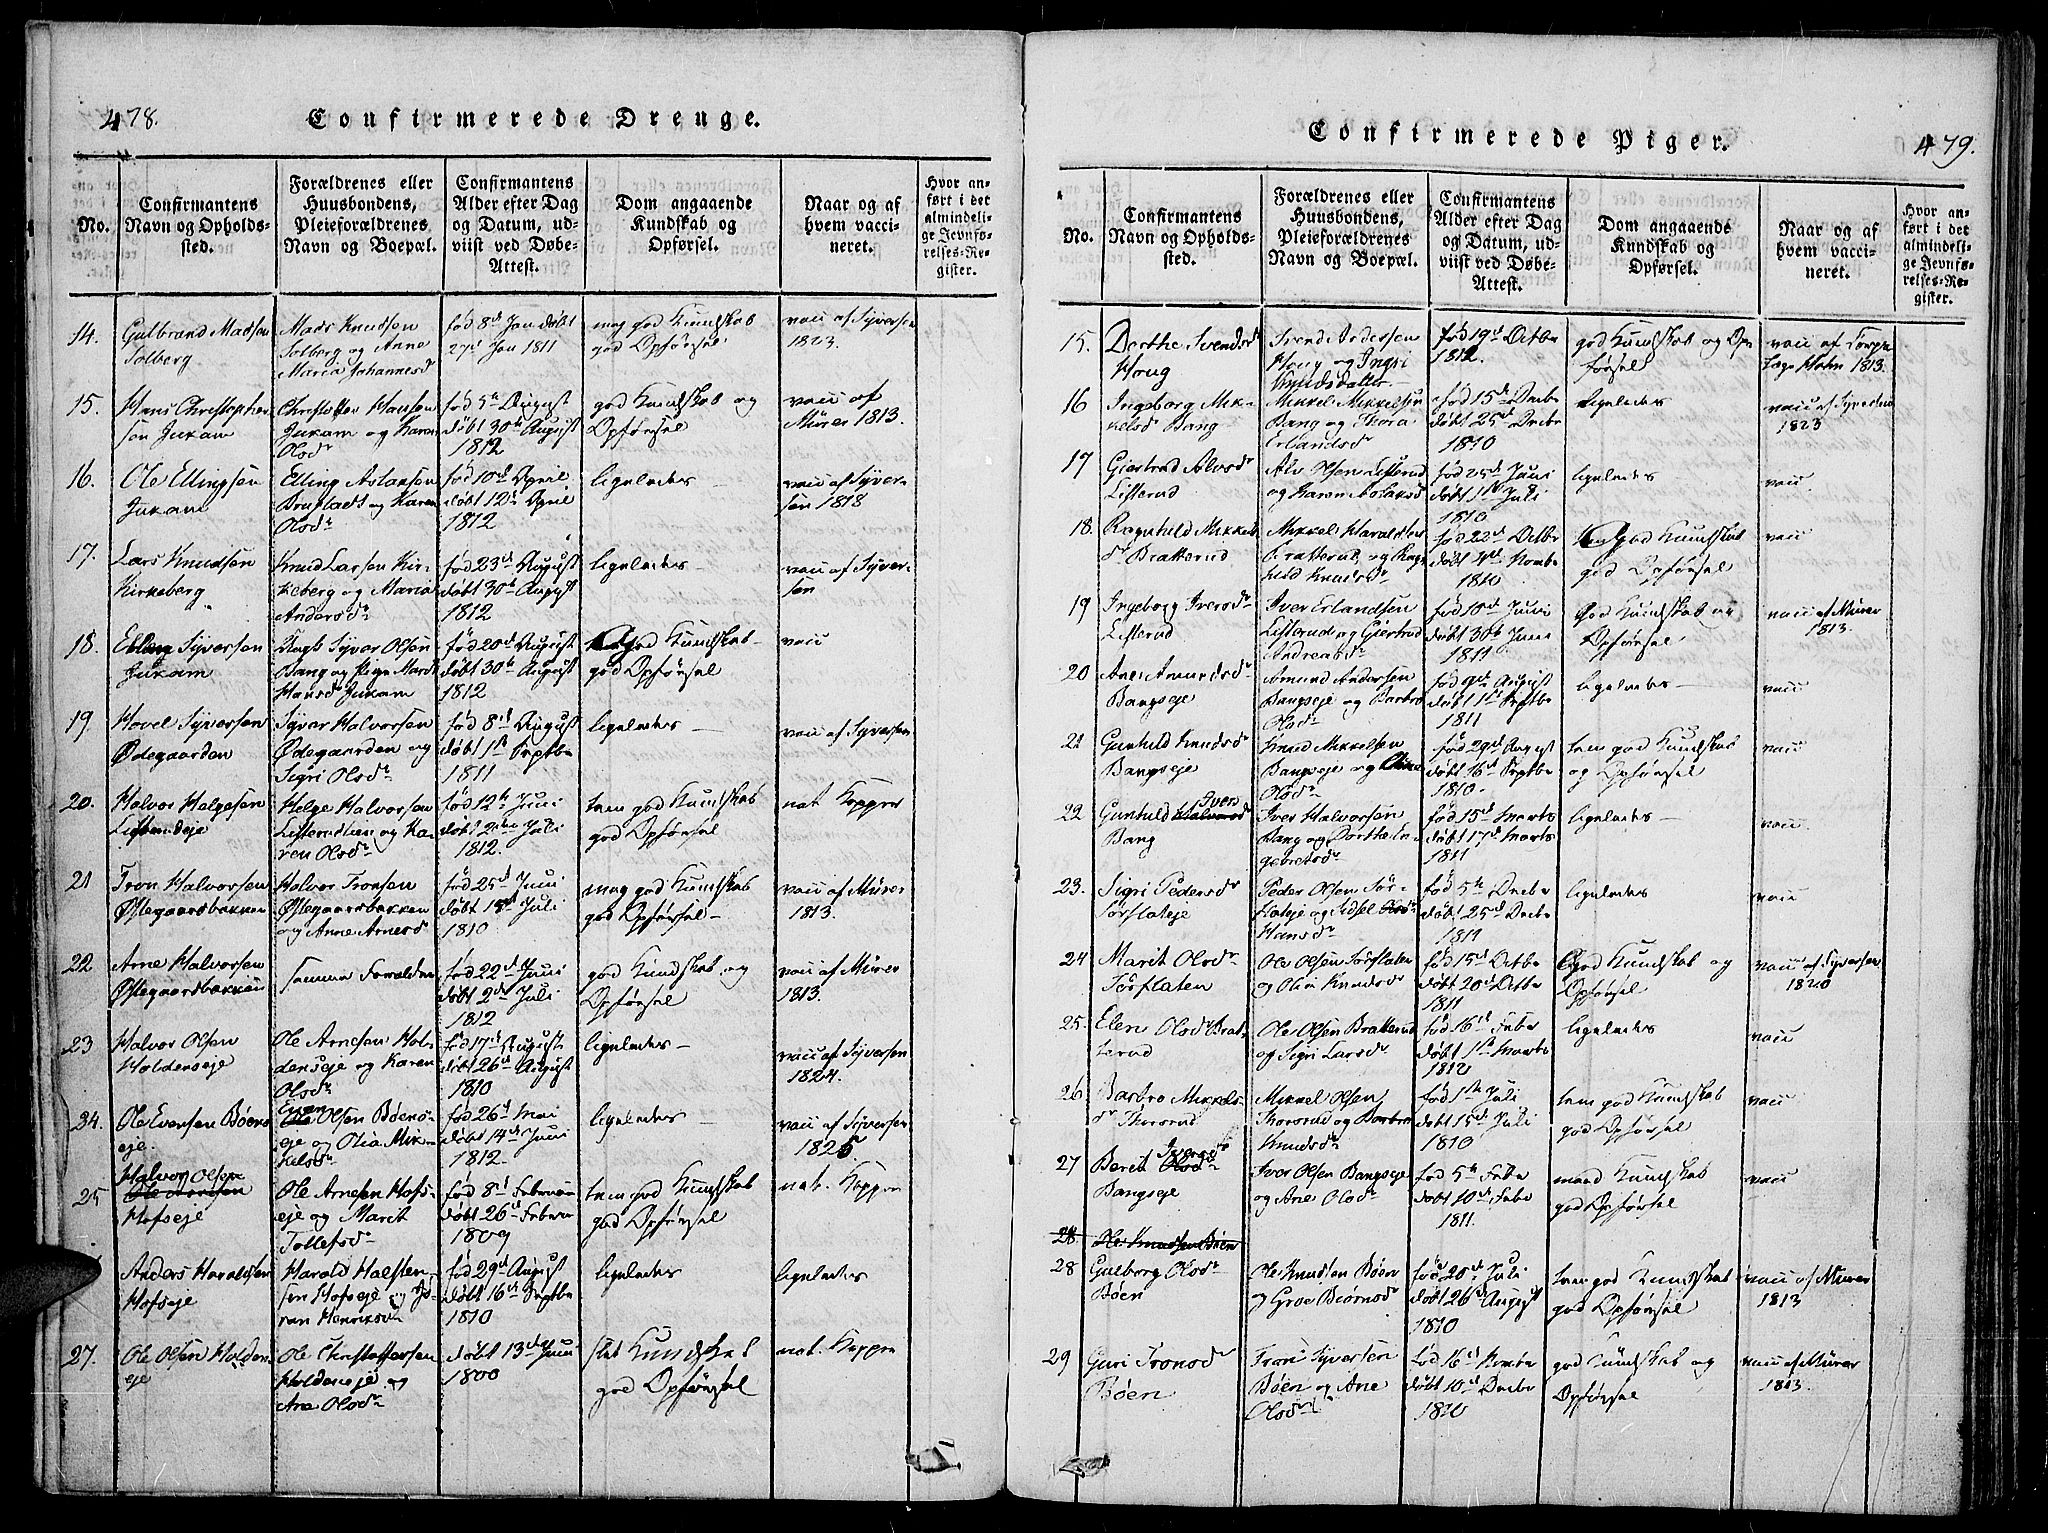 478.
Confirmerede Drenge.
No.
Confirmantens
Navn og Opholds-
sted.
Forældrenes eller
Huusbondens,
Pleieforældrenes
Navn og Boepæl.
Confirmantens
Alder efter Dag
og Datum, ud-
viist ved Døbe-
Attest.
Dom angaaende
Kundskab og
Opførsel.
Naar og af
hvem vacci-
neret.
Hvor an-
ført i det
almindeli-
ge Jevnfø-
relses-Re-
gister.
14.
Gulbrand Madsen
Solberg
Mads Knudsen
Solberg og Anne
Maria Johannesd
født 8de Jan døbt
27d Jan 1811
mag god Kundskab
god Opførsel
vacc af Syversen
1823
15.
Hans Christopher
sen Jukam
Christoffer Hansen
Jukam og Karen
Olsdr
fød 5te August
døbt 30te August
1812
god Kundskab og
Opførsel
vacc af
Mürer 1813.
16.
Ole Ellingsen
Jukam
Elling Aslaksen
Brufladt og Karen
Olsdr
fød 10de April
døbt 12te April
1812
ligeledes
vacc af Syver
sen 1818
17.
Lars Knudsen
Kirkeberg
Knud Larsen Kir-
keberg og Maria
Andersdr
fød 23de August
døbt 30te August
1812
ligeledes
vacc af Syver-
sen
18.
Elling Syversen
Jukam
Syver Olsen
Bang og Pigen Marit
Hansdr Jukam
fød 20de August
døbt 30te August
1812
god Kundskab
god Opførsel
vacc
19.
Hovel Syversen
Ødegaarden
Syver Halvorsen
Ødegaarden og
Sigri Olsdr
fød 8de August
døbt 1ste Septbr
1811
ligeledes
vacc af Syversen
20.
Halvor Helgesen
Listerudeje
Helge Halvorsen
Listerudeien og Ka-
ren Olsdr
fød 12te Juni
døbt 2den Juli
1812.
tem god Kundskab
god Opførsel
nat. Kopper
21
Tron Halvorsen
Østegaardsbakken
Halvor Tronsen
Østegaardsbakken
og Anne Arnesd
fød 25de Juni
døbt 18de Juli
1810
mag god Kundskab
god Opførsel
vacc af Mürer
1813.
22
Arne Halvorsen
Østegaardsbakken
samme Forældre
fød 22de Juni
døbt 2den Juli
1812
god Kundskab og
Opførsel
vacc af Mürer
1813.
23
Halvor Olsen
Holdenseje
Ole Arnesen Hol-
denseje og Karen
Olsdr
fød 17de August
døbt 26de August
1810
ligeledes
vacc af Syversen
1824.
24.
Ole Evensen Bøens
eje.
Even
Ole Olsen Bøens
eje og Olia Mik-
kelsdr
fød 26de Mai
døbt 14de Juni
1812.
ligeledes
vacc af Syversen
1825
25
Halvor Olsen
Hofseje
Ole Arnesen Hofs
eje og Marit
Tollefsdr
fød 8de Februar
døbt 26de Februar
1809
tem god Kundskab
god Opførsel
nat. Kopper
Anders Haraldsen
Hofseje
Harold Halsten
sen Hofseje og Jø-
ran Henriksdr
fød 29de August
døbt 16de Septbr
1810
ligeledes
ligeledes
27.
Ole Olsen Holdens
eje
Ole Christoffersen
Holdenseje og
Ane Olsdr
døbt 13de Juni
1800
slet Kundskab
god Opførsel
nat. Kopper
Confirmerede Piger.
479.
No.
Confirmantens
Navn og Opholds-
sted.
Forældrenes eller
Huusbondens,
Pleieforældrenes
Navn og Boepæl.
Confirmantens
Alder efter Dag
og Datum, ud-
viist ved Døbe-
Attest.
Dom angaaende
Kundskab og
Opførsel.
Naar og af
hvem vacci-
neret.
Hvor an-
ført i det
almindeli-
ge Jevnfø-
relses-Re-
gister.
15.
Dorthe Svendsdr
Houg
Svend Andersen
Houg og Ingri
Knudsdatter
fød 19de Octbr
1812.
god Kundskab og Op
førsel
vacc af Corps
Læge Holm 1813.
16
Ingeborg Mik-
kelsdr Bang
Mikkel Mikkelsen
Bang og Thora
Erlandsdr
fød 15de Decbr
døbt 25de Decbr
1810
ligeledes
vacc af Syversen
1823
17
Giertrud Alvsdr
Listerud
Alv Olsen Listerud
og Karen Aslaksd
fød 25de Juni
døbt 1ste Juli
1810
ligeledes
vacc
18.
Ragnhild Mikkels
dr Bratterud
Mikkel Haraldsen
Bratterud og Ragn
hild Knudsdr
fød 22de Octbr
døbt 4de Novbr
1810
god Kundskab
god Opførsel
vacc
19
Ingeborg Iversdr
Listerud
Iver Erlandsen
Listerud og Giertrud
Andreasdr
fød 10de Juni
døbt 30te Juni
1811
God Kundskab og
Opførsel
vacc af Mürer
1813.
20
Ane Amundsdr
Bangseje
Amund Andersen
Bangseje og Barbro
Olsdr
fød 9de August
døbt 1ste Septbr
1811
ligeledes
vacc
21
Gunhild Knudsdr
Bangseje
Knud Mikkelsen
Bangseje og
Olsdr
fød 29de August
døbt 16de Septbr
1810.
tem god Kundskab
og Opførsel
vacc
22
Ivers
Gunhild Halvorsdr
Bang
Iver Halvorsen
Bang og Dorthe In-
gebretsdr
fød 15de Marts
døbt 17de Marts
1811
ligeledes
vacc.
23.
Sigri Pedersdr
Sørflateje
Peder Olsen Sør-
flateje og Sidsel Olsdr
Hansdr
fød 5te Decbr
døbt 25de Decbr
1811
ligeledes
vacc
24
Marit Olsdr
Sørflaten
Ole Olsen Sørflaten
og Olia Knudsdr
fød 15de Octbr
døbt 20de Octbr
1811
god Kundskab og
Opførsel
vacc af Syversen
1820
25.
Elen Olsdr Brat-
terud
Ole Olsen Bratterud
og Sigri Larsdr
fød 16de Febr
døbt 1ste Marts
1812
ligeledes
vacc
26
Barbro Mikkels-
dr Thorsrud
Mikkel Olsen
Thorsrud og Barbro
Knudsdr
fød 1ste Juli
døbt 15de Juli
1810
tem god Kundskab
god Opførsel
vacc
27
Iversdr
Berit Olsdr
Bangseje
Iver Olsen Bangseje
og Ane Olsdr
fød 5te Febr
døbt 10de Febr
1811.
maad Kundskab
god Opførsel
vacc
28.
Ole Knudsen Bøen
28
Gulborg Olsdr
Bøen
Ole Knudsen Bøen
og Groe Biørnsdr
fød 20de Juli
døbt 26de August
1810
tem god Kundskab
god Opførsel
vacc af Mürer
1813
29
Guri Tronsdr
Bøen
Tron Syversen
Bøen og Ane
Olsdr
fød 16de Novbr
døbt 10de Decbr
1810
god Kundskab og
Opførsel
vacc af Mürer
1813.